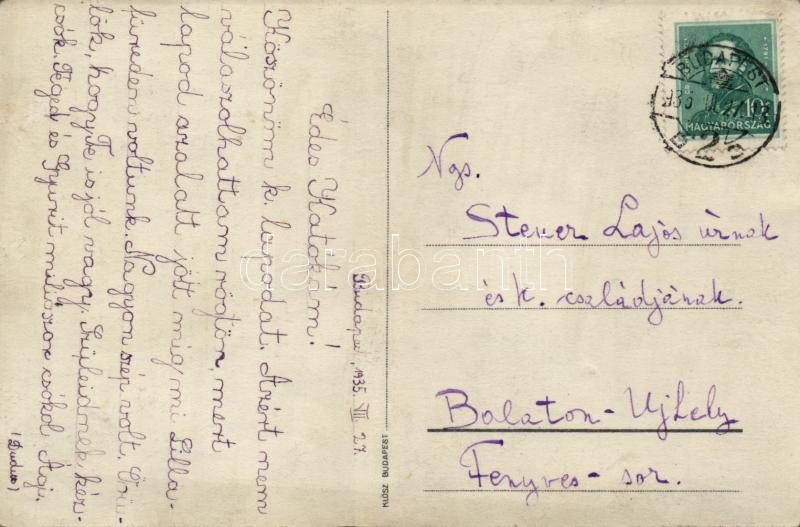 Budapest, 1935. VII. 27.
Édes Katókám!
Köszönöm k. lapodat. Azért nem
válaszolhattam rögtön, mert
lapod azalatt jött míg mi Lilla-
füreden voltunk. Nagyon szép volt. Örü-
lök, hogy Te is jól vagy. Szüleidnek kézi-
csók. Téged és Gyurit milliószor csókol Ági.
(Dudus)
KLÖSZ BUDAPEST
BUDAPEST
10
MAGYARORSZÁG
Ngs.
Steuer Lajos úrnak
és k. családjának.
Balaton-Ujhely
Fenyves-sor.
darabanth